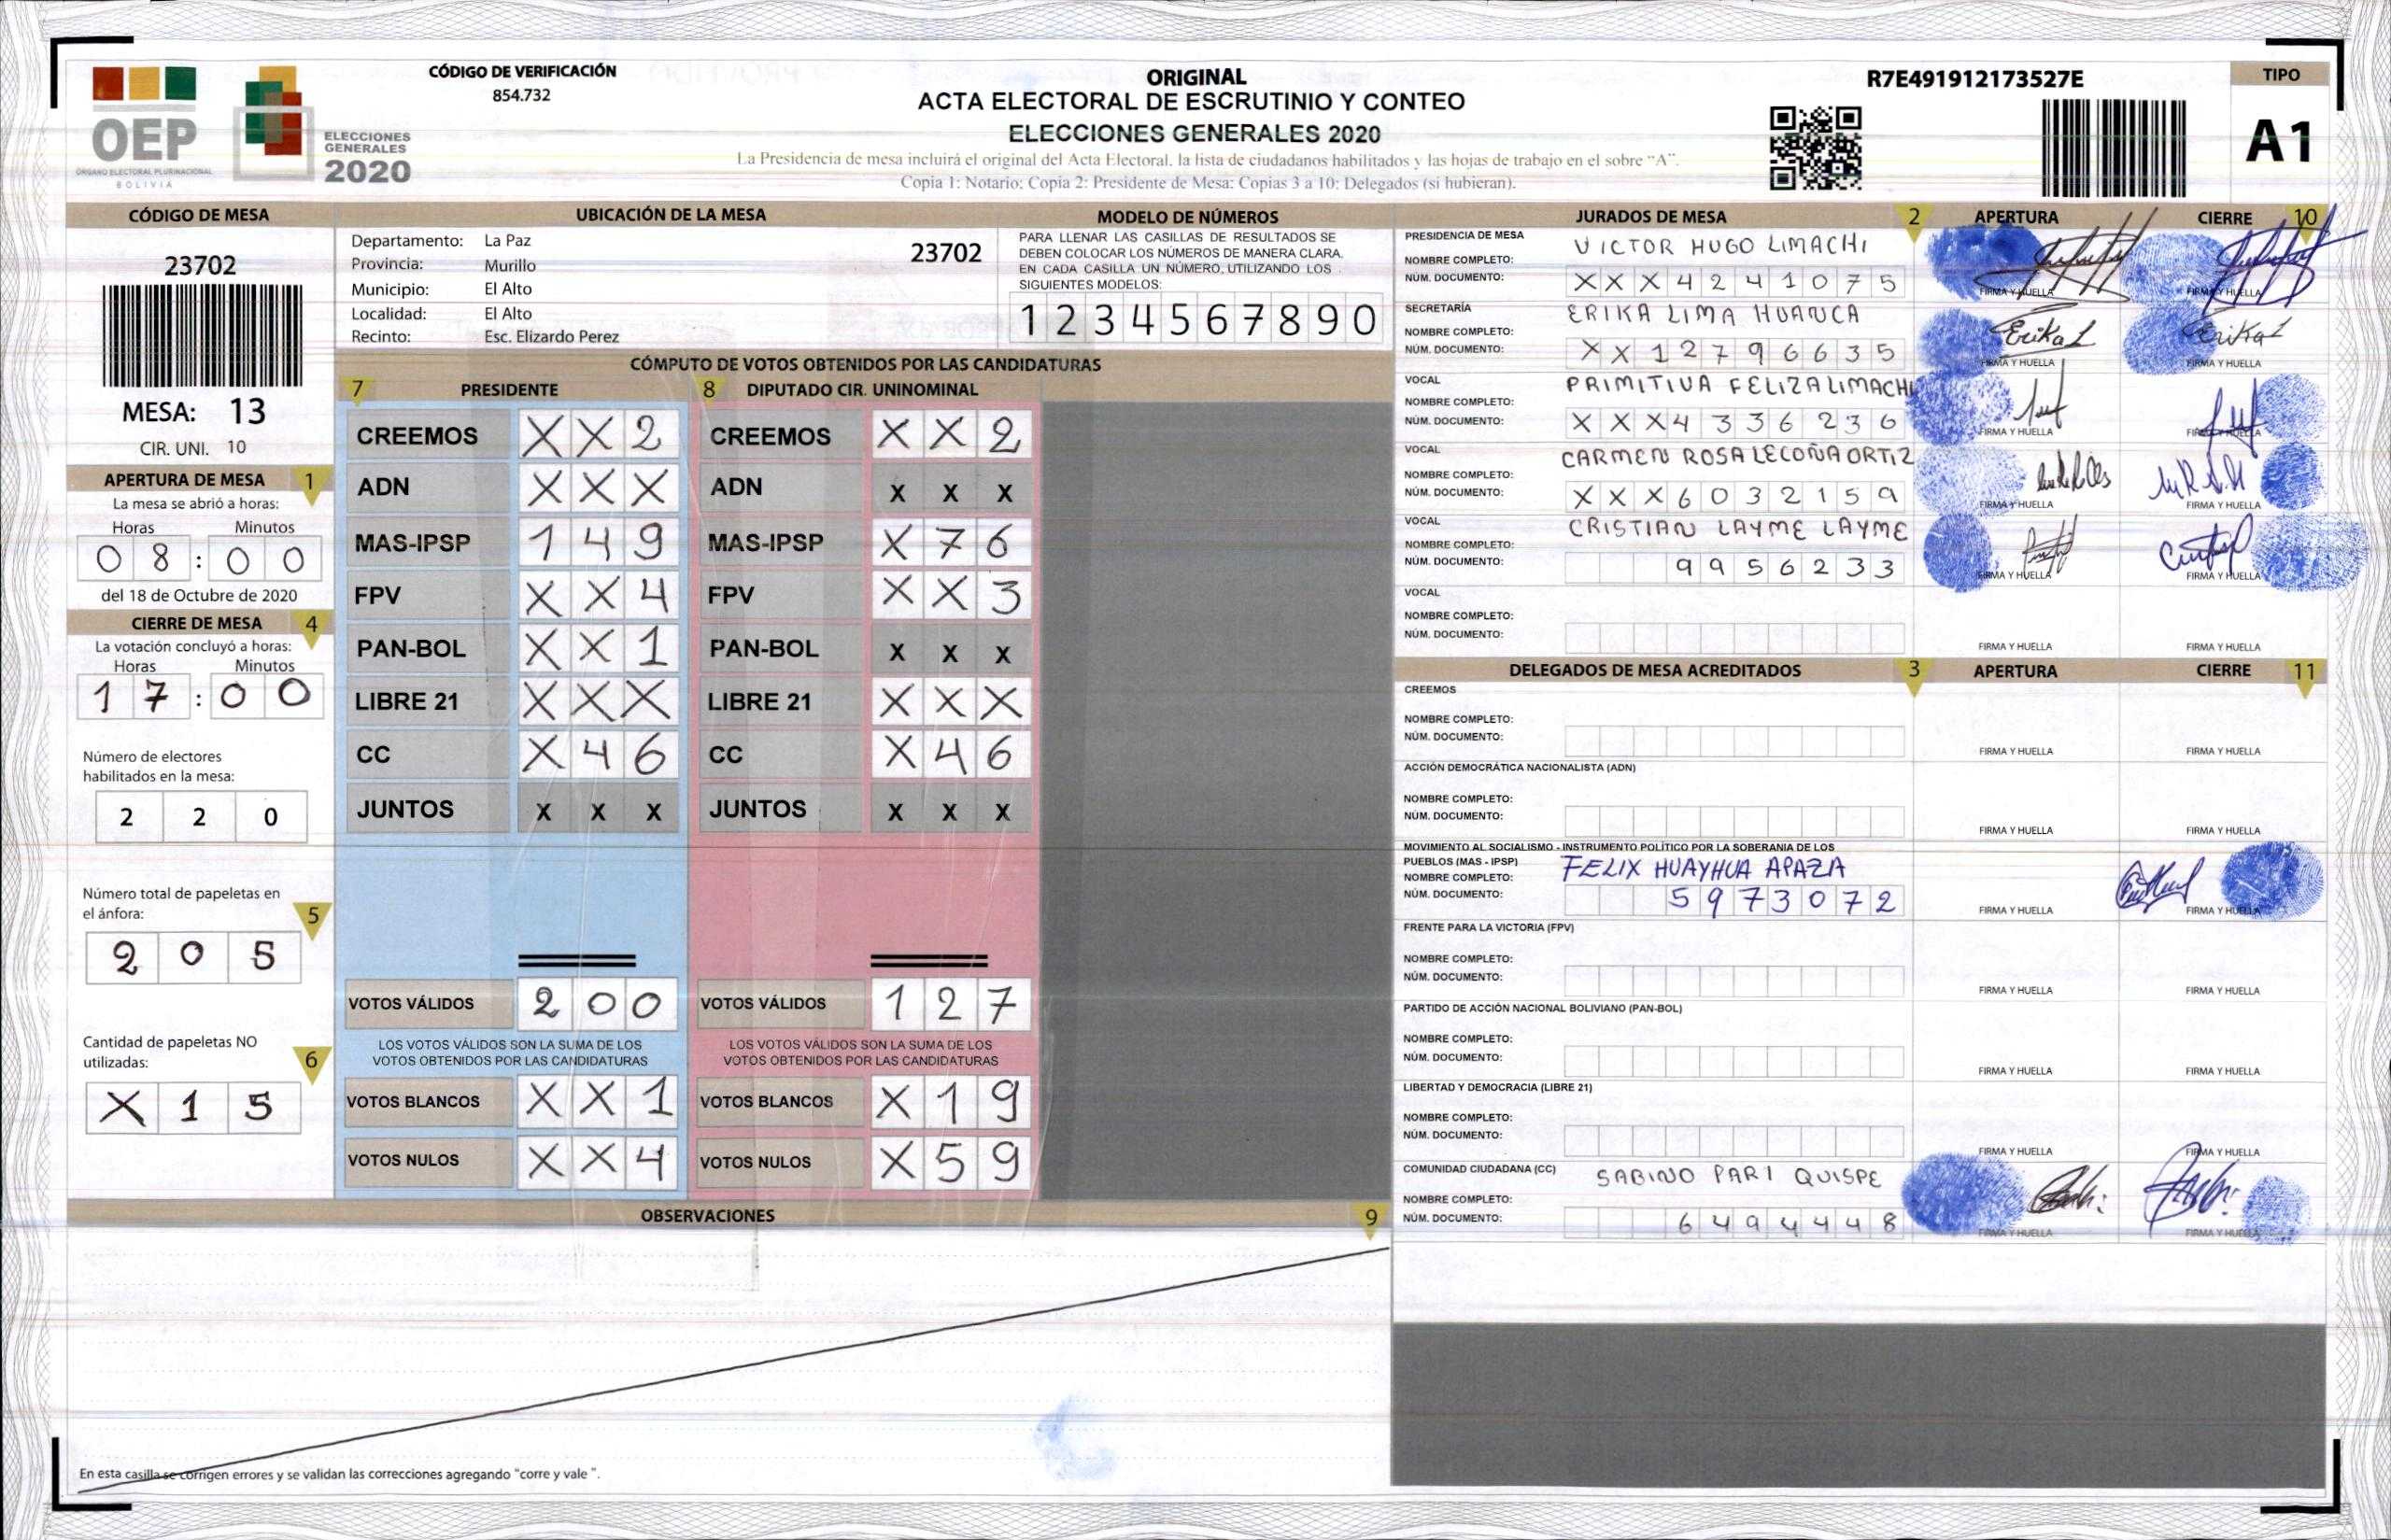 OEP
ÓRGANO ELECTORAL PLURINACIONAL
BOLIVIA
ELECCIONES
GENERALES
2020
CÓDIGO DE VERIFICACIÓN
854.732
ORIGINAL
ACTA ELECTORAL DE ESCRUTINIO Y CONTEO
ELECCIONES GENERALES 2020
La Presidencia de mesa incluirá el original del Acta Electoral, la lista de ciudadanos habilitados y las hojas de trabajo en el sobre "A".
Copia 1: Notario; Copia 2: Presidente de Mesa; Copias 3 a 10: Delegados (si hubieran).
R7E491912173527E
TIPO
A1
CÓDIGO DE MESA
23702
MESA: 13
CIR. UNI. 10
APERTURA DE MESA 1
La mesa se abrió a horas:
Horas Minutos
0 8 : 0 0
del 18 de Octubre de 2020
CIERRE DE MESA 4
La votación concluyó a horas:
Horas Minutos
1 7 : 0 0
Número de electores
habilitados en la mesa:
2 2 0
Número total de papeletas en
el ánfora: 5
2 0 5
Cantidad de papeletas NO
utilizadas: 6
X 1 5
UBICACIÓN DE LA MESA
Departamento: La Paz 23702
Provincia: Murillo
Municipio: El Alto
Localidad: El Alto
Recinto: Esc. Elizardo Perez
MODELO DE NÚMEROS
PARA LLENAR LAS CASILLAS DE RESULTADOS SE
DEBEN COLOCAR LOS NÚMEROS DE MANERA CLARA.
EN CADA CASILLA UN NÚMERO, UTILIZANDO LOS
SIGUIENTES MODELOS:
1 2 3 4 5 6 7 8 9 0
CÓMPUTO DE VOTOS OBTENIDOS POR LAS CANDIDATURAS
7 PRESIDENTE 8 DIPUTADO CIR. UNINOMINAL
CREEMOS X X 2 CREEMOS X X 2
ADN X X X ADN X X X
MAS-IPSP 1 4 9 MAS-IPSP X 7 6
FPV X X 4 FPV X X 3
PAN-BOL X X 1 PAN-BOL X X X
LIBRE 21 X X X LIBRE 21 X X X
CC X 4 6 CC X 4 6
JUNTOS X X X JUNTOS X X X
VOTOS VÁLIDOS 2 0 0 VOTOS VÁLIDOS 1 2 7
LOS VOTOS VÁLIDOS SON LA SUMA DE LOS LOS VOTOS VÁLIDOS SON LA SUMA DE LOS
VOTOS OBTENIDOS POR LAS CANDIDATURAS VOTOS OBTENIDOS POR LAS CANDIDATURAS
VOTOS BLANCOS X X 1 VOTOS BLANCOS X 1 9
VOTOS NULOS X X 4 VOTOS NULOS X 5 9
OBSERVACIONES 9
En esta casilla se corrigen errores y se validan las correcciones agregando "corre y vale ".
JURADOS DE MESA 2 APERTURA CIERRE 10
PRESIDENCIA DE MESA
NOMBRE COMPLETO: VICTOR HUGO LIMACHI
NÚM. DOCUMENTO: X X X 4 2 4 1 0 7 5 FIRMA Y HUELLA FIRMA Y HUELLA
SECRETARÍA
NOMBRE COMPLETO: ERIKA LIMA HUANCA Erika L Erika L
NÚM. DOCUMENTO: X X 1 2 7 9 6 6 3 5 FIRMA Y HUELLA FIRMA Y HUELLA
VOCAL
NOMBRE COMPLETO: PRIMITIVA FELIZA LIMACHI
NÚM. DOCUMENTO: X X X 4 3 3 6 2 3 6 FIRMA Y HUELLA FIRMA Y HUELLA
VOCAL
NOMBRE COMPLETO: CARMEN ROSA LECOÑA ORTIZ
NÚM. DOCUMENTO: X X X 6 0 3 2 1 5 9 FIRMA Y HUELLA FIRMA Y HUELLA
VOCAL
NOMBRE COMPLETO: CRISTIAN LAYME LAYME
NÚM. DOCUMENTO: 9 9 5 6 2 3 3 FIRMA Y HUELLA FIRMA Y HUELLA
VOCAL
NOMBRE COMPLETO:
NÚM. DOCUMENTO: FIRMA Y HUELLA FIRMA Y HUELLA
DELEGADOS DE MESA ACREDITADOS 3 APERTURA CIERRE 11
CREEMOS
NOMBRE COMPLETO:
NÚM. DOCUMENTO: FIRMA Y HUELLA FIRMA Y HUELLA
ACCIÓN DEMOCRÁTICA NACIONALISTA (ADN)
NOMBRE COMPLETO:
NÚM. DOCUMENTO: FIRMA Y HUELLA FIRMA Y HUELLA
MOVIMIENTO AL SOCIALISMO - INSTRUMENTO POLÍTICO POR LA SOBERANIA DE LOS
PUEBLOS (MAS - IPSP)
NOMBRE COMPLETO: FELIX HUAYHUA APAZA
NÚM. DOCUMENTO: 5 9 7 3 0 7 2 FIRMA Y HUELLA FIRMA Y HUELLA
FRENTE PARA LA VICTORIA (FPV)
NOMBRE COMPLETO:
NÚM. DOCUMENTO: FIRMA Y HUELLA FIRMA Y HUELLA
PARTIDO DE ACCIÓN NACIONAL BOLIVIANO (PAN-BOL)
NOMBRE COMPLETO:
NÚM. DOCUMENTO: FIRMA Y HUELLA FIRMA Y HUELLA
LIBERTAD Y DEMOCRACIA (LIBRE 21)
NOMBRE COMPLETO:
NÚM. DOCUMENTO: FIRMA Y HUELLA FIRMA Y HUELLA
COMUNIDAD CIUDADANA (CC)
NOMBRE COMPLETO: SABINO PARI QUISPE
NÚM. DOCUMENTO: 6 4 9 4 4 4 8 FIRMA Y HUELLA FIRMA Y HUELLA